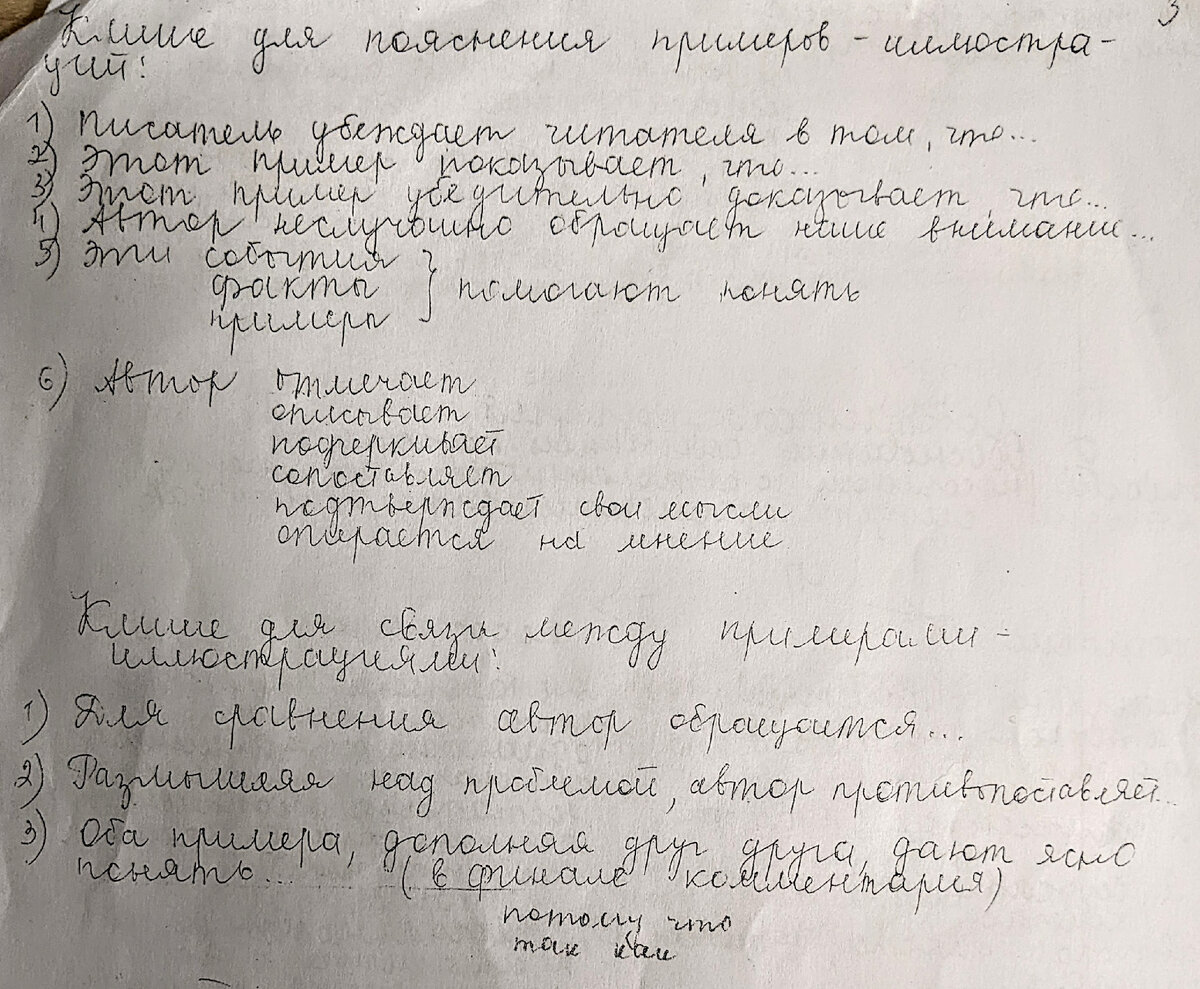 3
Клише для пояснения примеров - иллюстра-
ций:
1) Писатель убеждает читателя в том, что...
2) Этот пример показывает, что...
3) Этот пример убедительно доказывает, что...
4) Автор неслучайно обращает наше внимание...
5) Эти события
факты } помогают понять
примеры
6) Автор отмечает
описывает
подчеркивает
сопоставляет
подтверждает свои мысли
опирается на мнение
Клише для связи между примерами -
иллюстрациями:
1) Для сравнения автор обращается...
2) Размышляя над проблемой, автор противопоставляет...
3) Оба примера, дополняя друг друга, дают ясно
понять... (в финале комментария)
потому что
так как